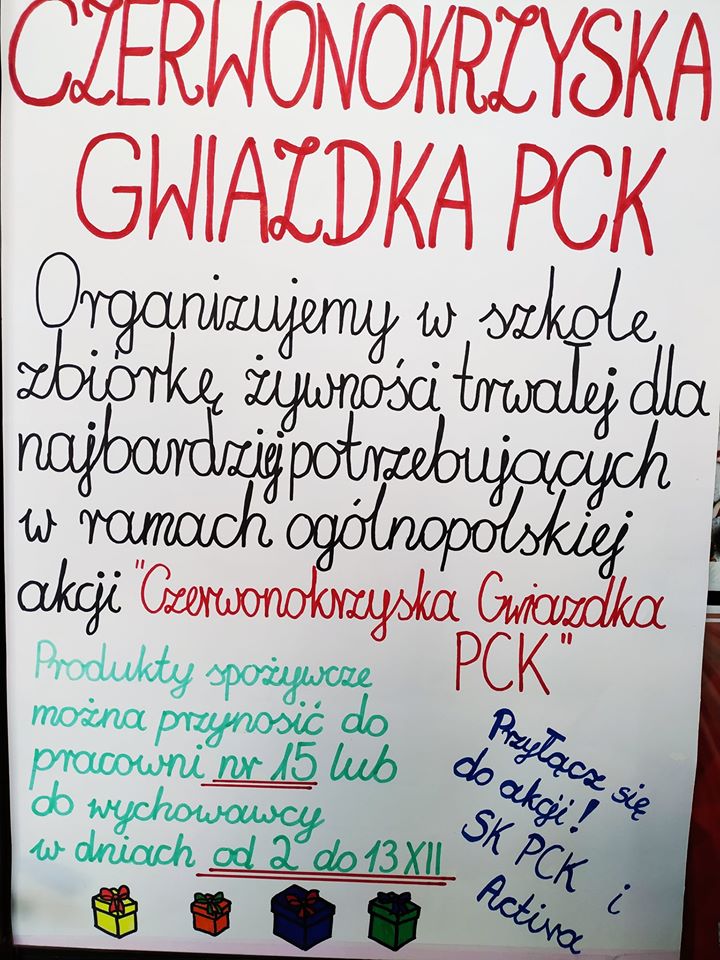 CZERWONOKRZYSKA
GWIAZDKA PCK
Organizujemy w szkole
zbiórkę żywności trwałej dla
najbardziej potrzebujących
w ramach ogólnopolskiej
akcji "Czerwonokrzyska Gwiazdka
PCK"
Produkty spożywcze
można przynosić do
pracowni nr 15 lub
do wychowawcy
w dniach od 2 do 13 XII
Przyłącz się
do akcji!
SK PCK i
Activa